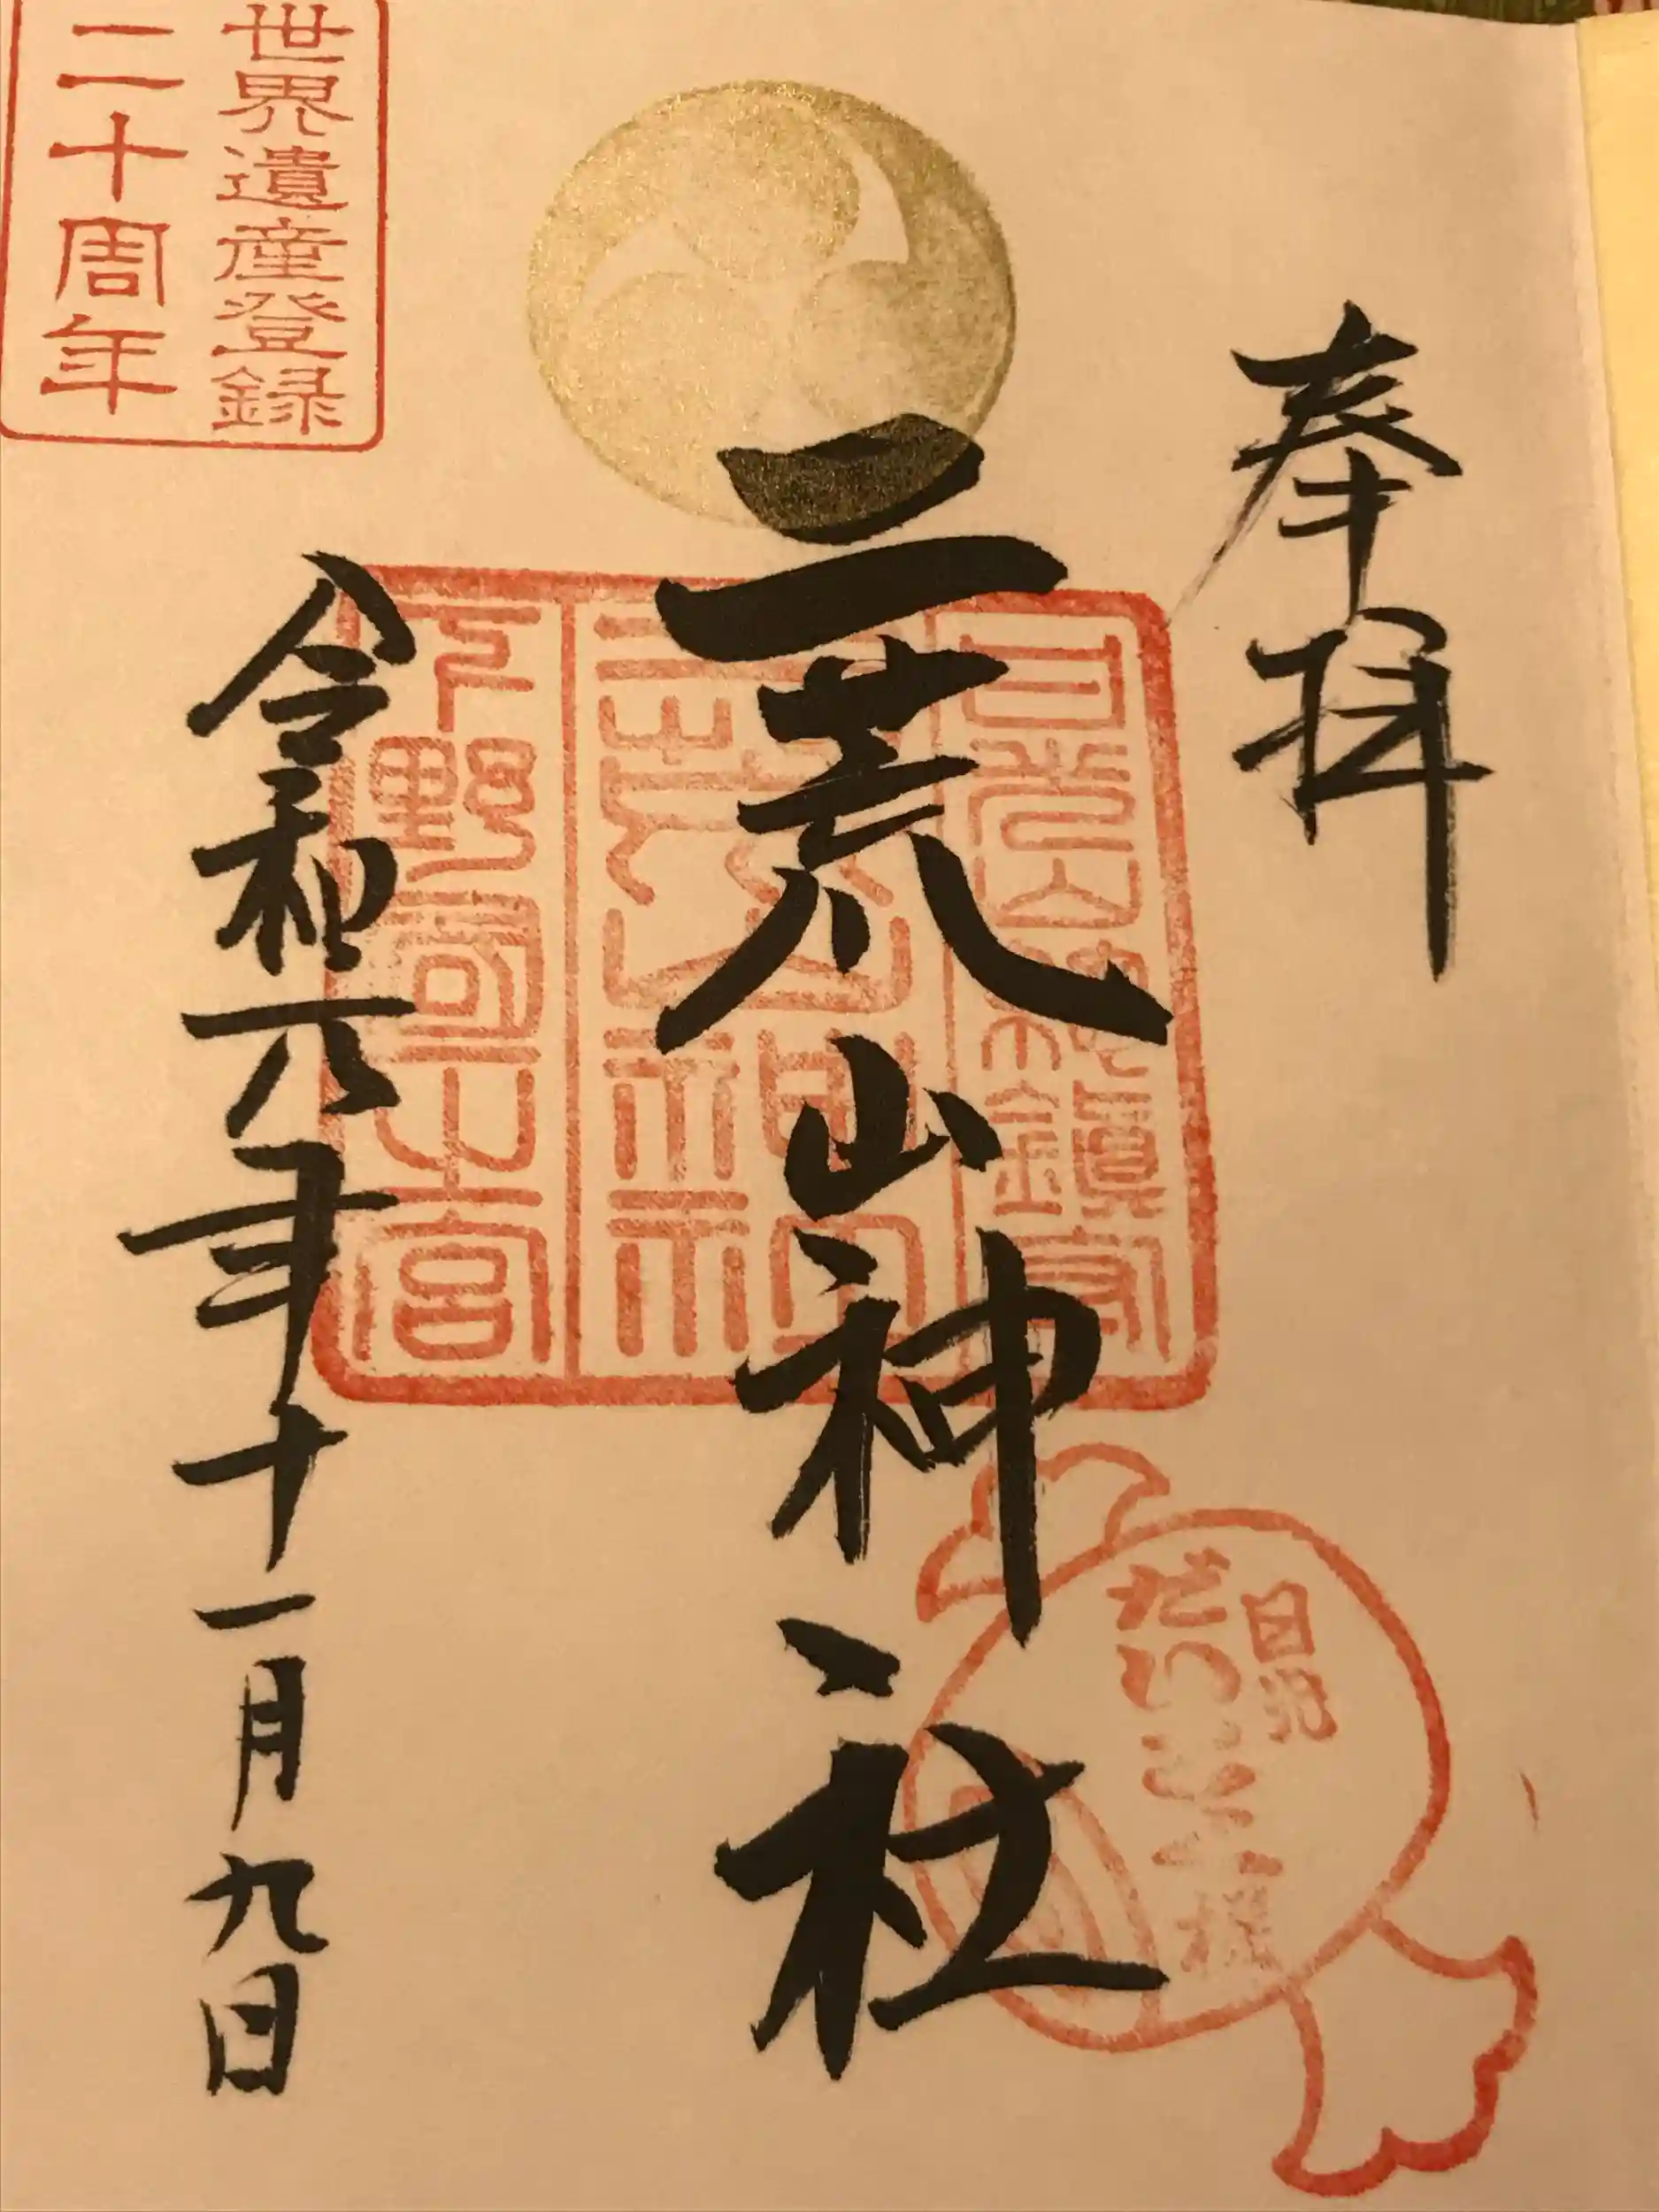 奉拝
日光山総鎮守
二荒山神社
二荒山神社
下野國一之宮
日光
だいこく様
令和六年十一月九日
世界遺産登録
二十周年